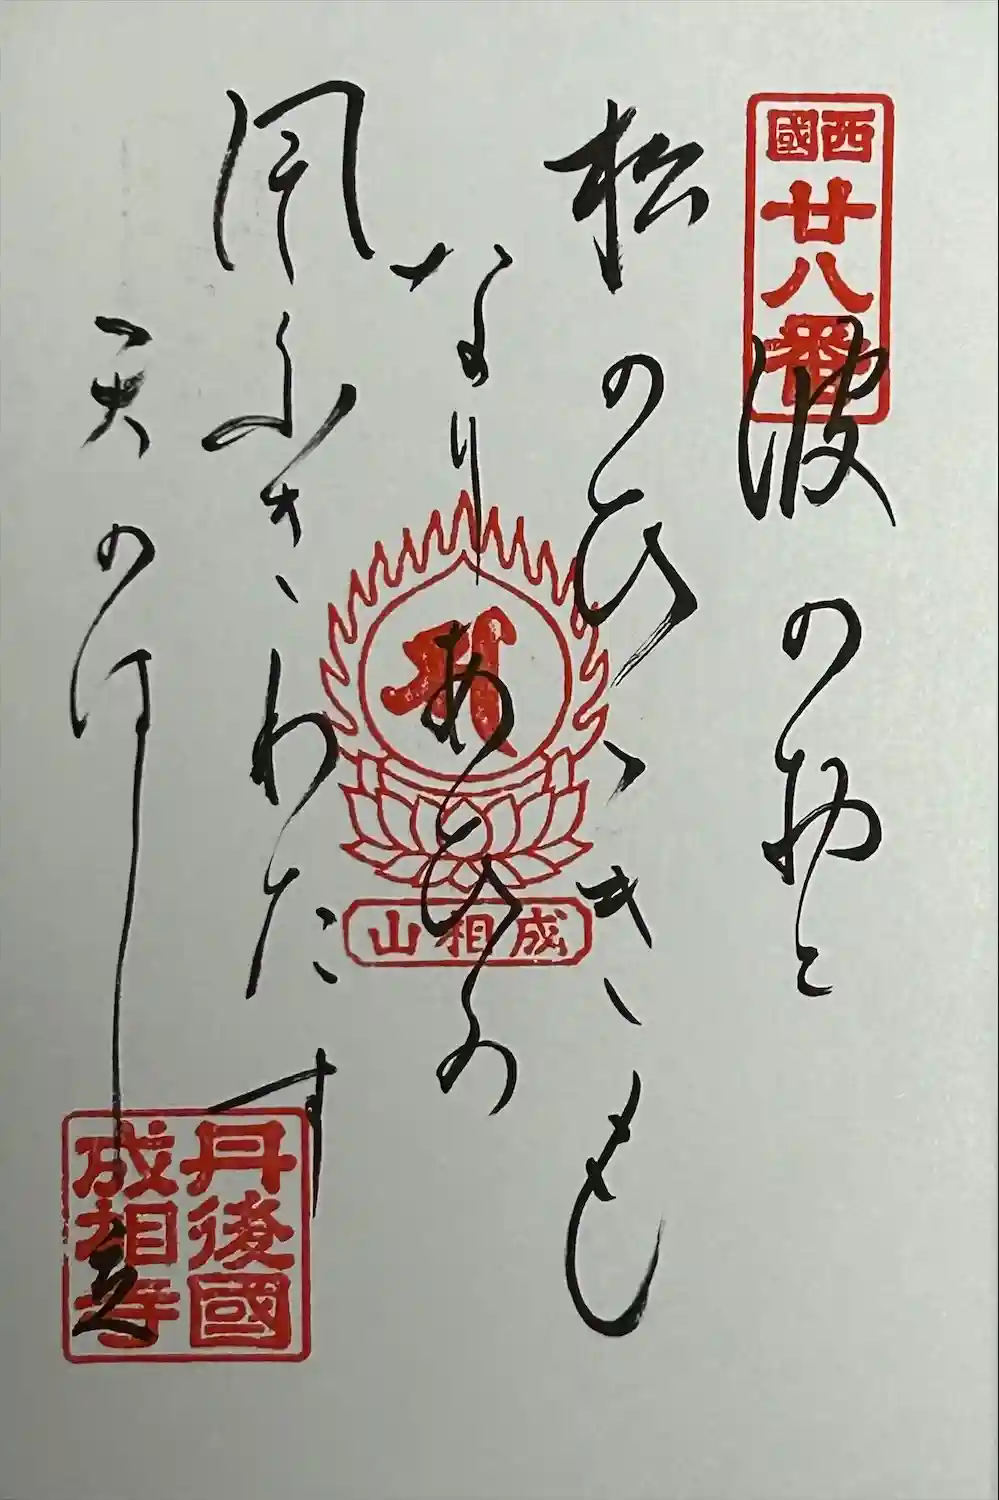 西國
廿八番
波の於と
松のひゞきも
なりあひの
風ふきわたす
天のはし立
成相山
丹後國
成相寺